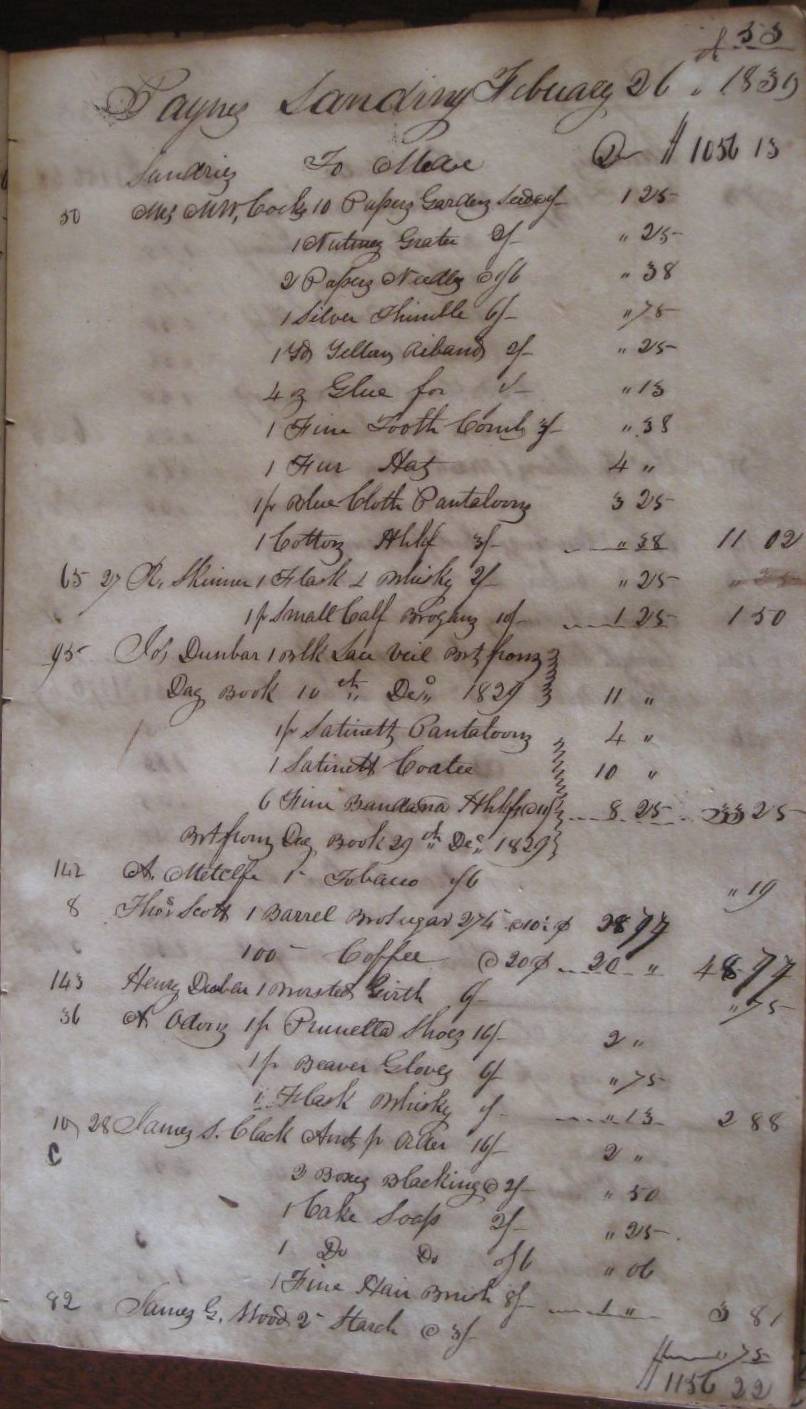 53
Paynes Landing February 26 " 1839
Sundries To Mdse Dr $ 1056 13
50 M. W. Cocks 10 Papers Garden Seeds 1 25
1 Nutmeg Grater 2/- " 25
2 Papers Needles @ 1/6 " 38
1 Silver Thimble 6/- " 75
1 Yd Yellow Riband 2/- " 25
4 oz Glue for 1/- " 13
1 Fine Tooth Comb 3/- " 38
1 Fur Hat 4 "
1 pr Blue Cloth Pantaloons 3 25
1 Cotton Hhkf 3/- " 38 11 02
65 27 R. Skinner 1 Flask Whisky 2/- " 25
1 p Small Calf Brogans 10/- 1 25 1 50
95 Jos Dunbar 1 Blk Lace Veil Brt from
Day Book 10 th Deco 1829 11 "
1 p Satinett Pantaloons 4 "
1 Satinett Coatee 10 "
6 Fine Bandana Hhkfs @ 11/ 8 25 33 25
Brt from Day Book 29 th Dec 1829
142 A. Metcalfe 1 - Tobacco 1/6 " 19
8 Thos Scott 1 Barrel Bro Sugar 274 @ 10½ ¢ 28 77
100 - Coffee @ 20 ¢ 20 " 48 77
143 Henry Dunbar 1 Worsted Girth 6/- " 75
36 A. Odom 1 p Prunella Shoes 16/- 2 "
1 p Beaver Gloves 6/ " 75
1 Flask Whisky 1/- " 13 2 88
10 28 James S. Clack Amt p Order 16/- 2 "
C 2 Boxes Blacking @ 2/- " 50
1 Cake Soap 2/- " 25
1 Do Do 0/6 " 06
1 Fine Hair Brush 8/- 1 " 3 81
82 James G. Wood 2 - Starch @ 3/- 75
$ 1156 22